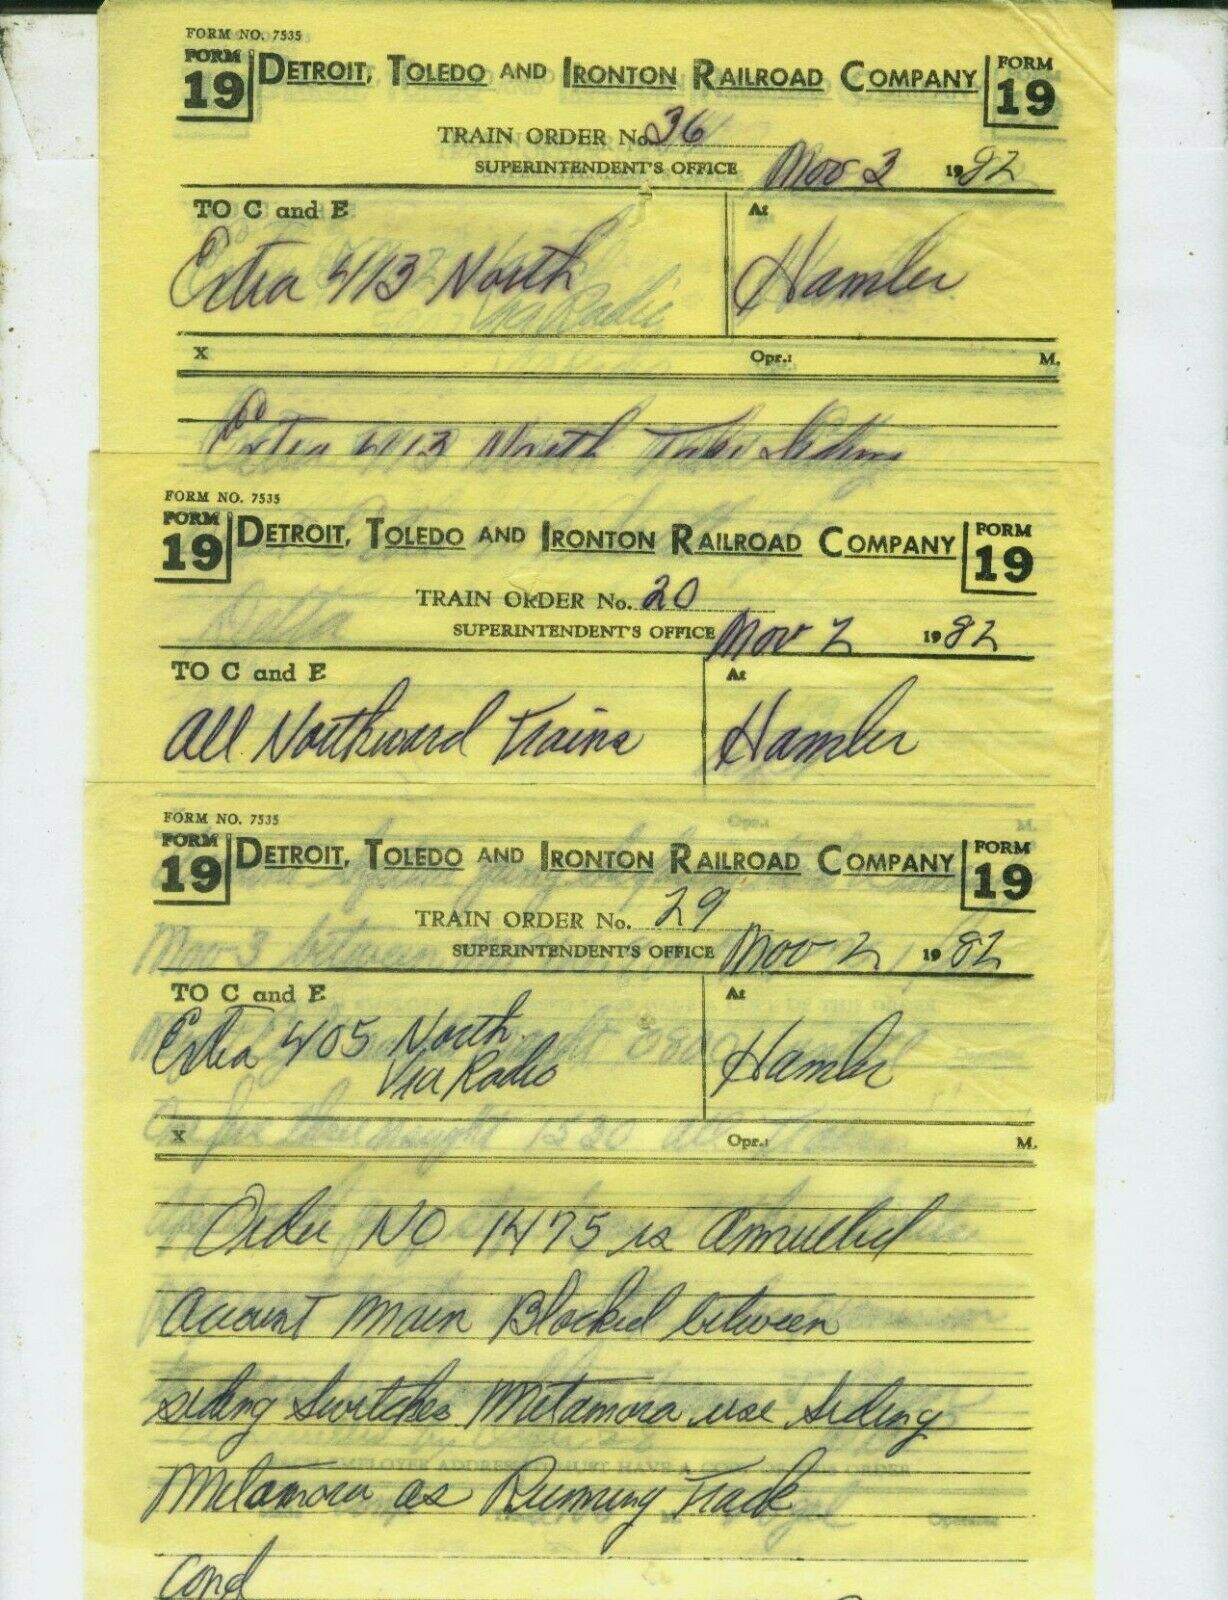 FORM NO. 7535
FORM 19 DETROIT, TOLEDO AND IRONTON RAILROAD COMPANY FORM 19
TRAIN ORDER No. 36
SUPERINTENDENT'S OFFICE Nov 3 1982
TO C and E At
Extra 413 North Hamler
X Opr.: M.
Extra 413 North Take Siding
Delta
FORM NO. 7535
FORM 19 DETROIT, TOLEDO AND IRONTON RAILROAD COMPANY FORM 19
TRAIN ORDER No. 20
SUPERINTENDENT'S OFFICE Nov 2 1982
TO C and E At
All Northward Trains Hamler
FORM NO. 7535
FORM 19 DETROIT, TOLEDO AND IRONTON RAILROAD COMPANY FORM 19
TRAIN ORDER No. 29
SUPERINTENDENT'S OFFICE Nov 2 1982
TO C and E At
Extra 405 North Hamler
Via Radio
X Opr.: M.
Order NO 1475 is annulled
account Main Blocked between
siding Switches Metamora use Siding
Metamora as Running Track
Cond